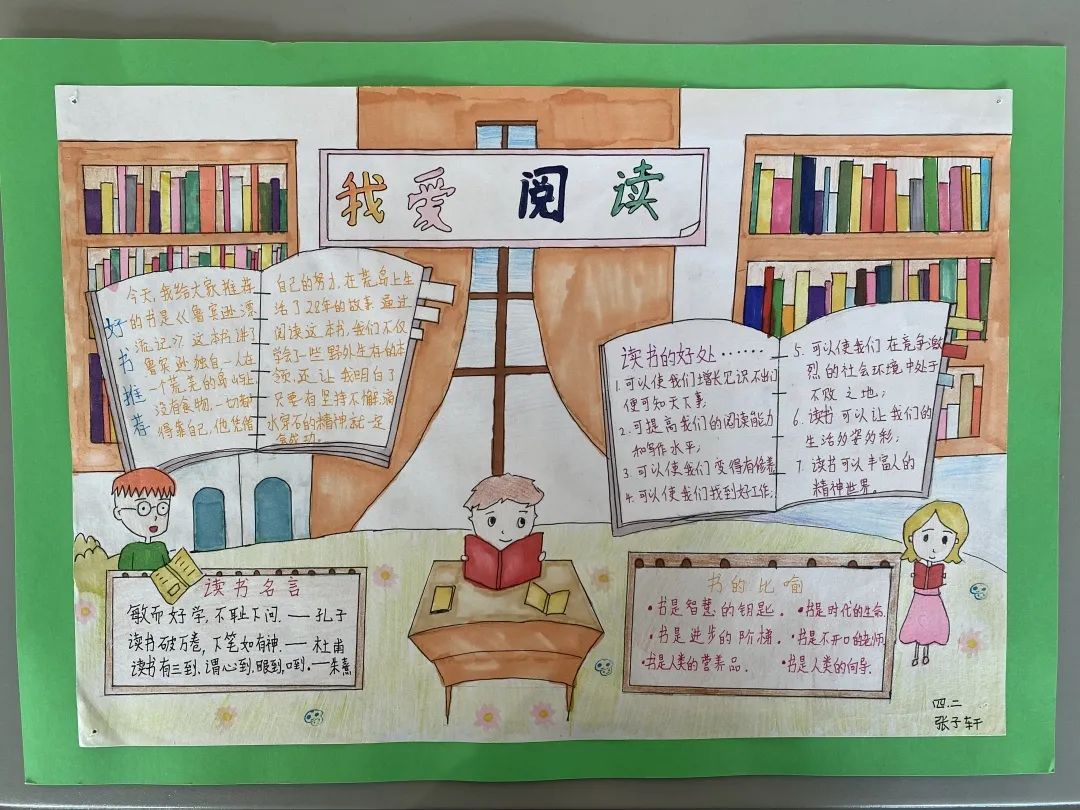 我爱阅读
好书推荐
今天,我给大家推荐
的书是《鲁宾逊漂
流记》,这本书讲了
鲁宾逊独自一人在
一个荒芜的岛屿上
没有食物,一切都
得靠自己,他凭借
自己的努力,在荒岛上生
活了28年的故事.通过
阅读这本书,我们不仅
学会了一些野外生存的本
领,还让我明白了
只要有坚持不懈,滴
水穿石的精神就一定
能成功.
读书的好处······
1.可以使我们增长见识不出门
便可知天下事;
2.可提高我们的阅读能力
和写作水平;
3.可以使我们变得有修养
4.可以使我们找到好工作;
5.可以使我们在竞争激
烈的社会环境中处于
不败之地;
6.读书可以让我们的
生活多姿多彩;
7.读书可以丰富人的
精神世界。
读书名言
敏而好学,不耻下问.——孔子
读书破万卷,下笔如有神.——杜甫
读书有三到,谓心到,眼到,口到.——朱熹
书的比喻
•书是智慧的钥匙. •书是时代的生命
•书是进步的阶梯. •书是不开口的老师
•书是人类的营养品. •书是人类的向导.
四.二
张子轩